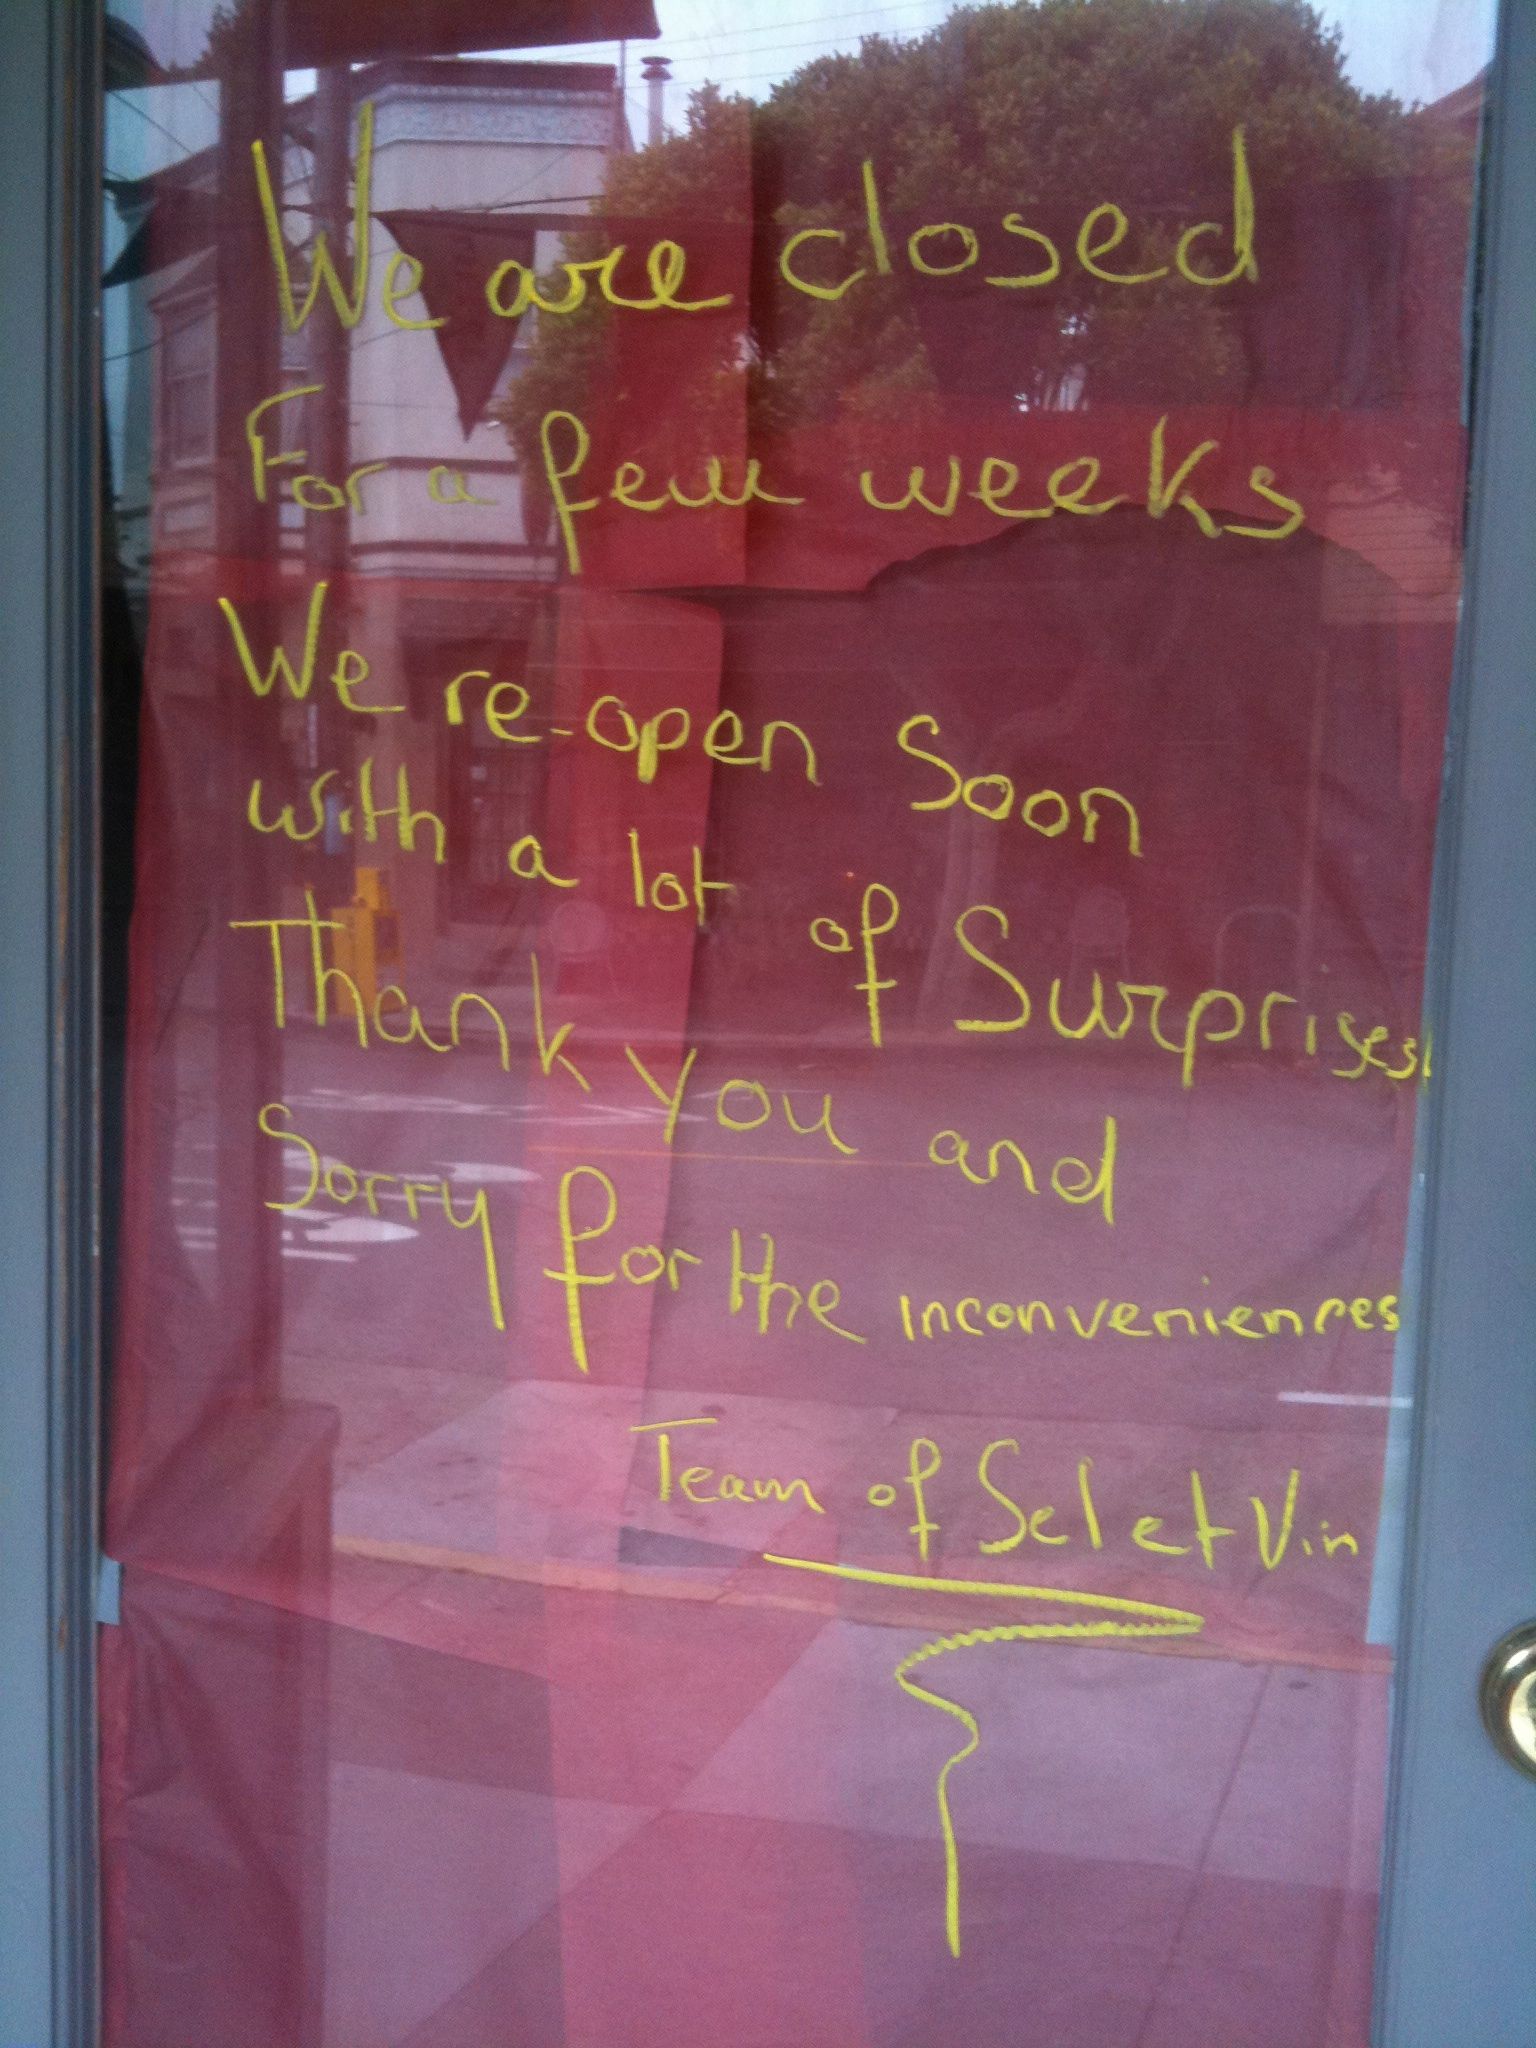 We are closed
For a few weeks
We re-open Soon
with a lot of Surprises!
Thank you and
Sorry for the inconveniences
Team of Sel et Vin